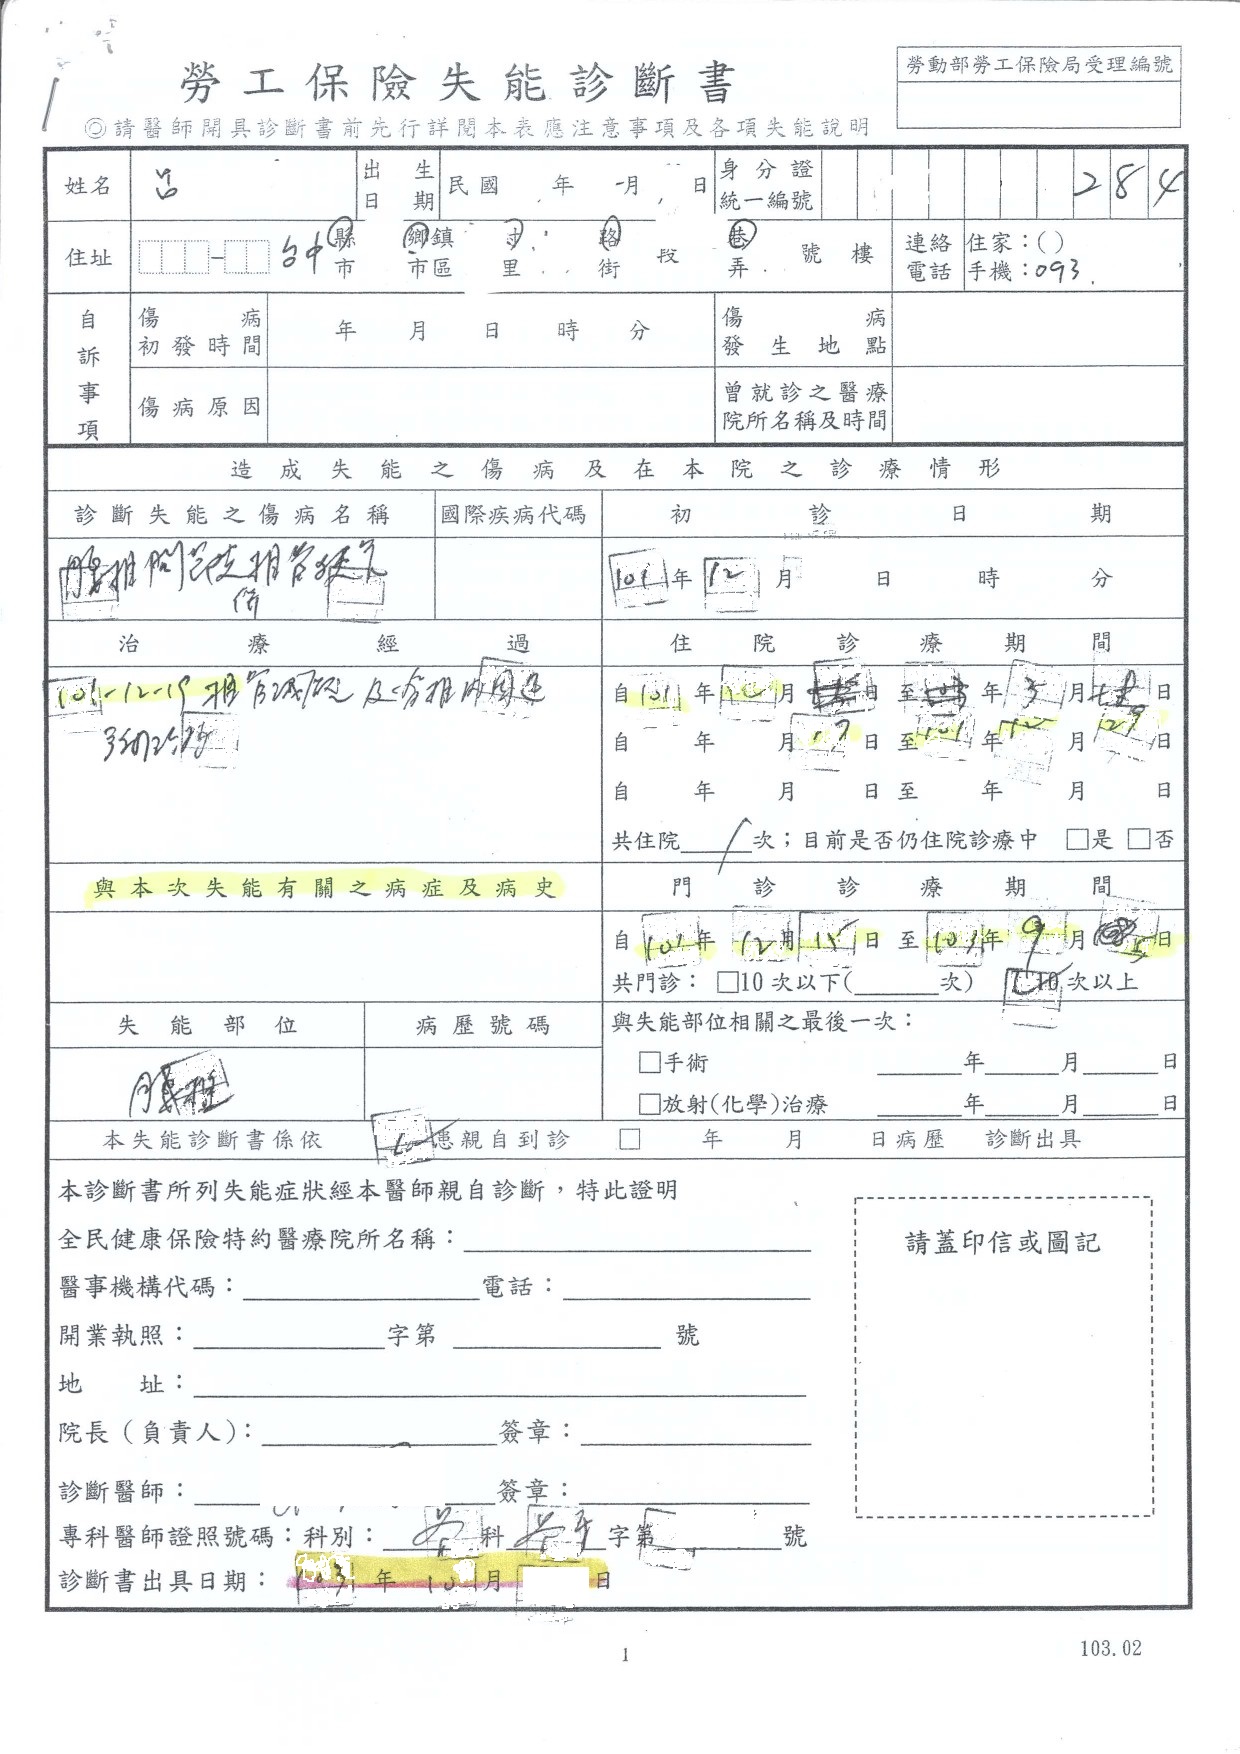 勞工保險失能診斷書
勞動部勞工保險局受理編號
◎請醫師開具診斷書前先行詳閱本表應注意事項及各項失能說明
姓名 呂 出生日期 民國 年 月 日 身分證統一編號 284
住址 - 台中 縣市 鄉鎮市區 里 路街 段 巷弄 號 樓 連絡電話 住家:( ) 手機:093
自訴事項
傷病初發時間 年 月 日 時 分 傷病發生地點
傷病原因 曾就診之醫療院所名稱及時間
造成失能之傷病及在本院之診療情形
診斷失能之傷病名稱 國際疾病代碼 初診日期
腰椎 101 年 12 月 日 時 分
治療經過 住院診療期間
101-12-19 自 101 年 12 月 日 至 年 3 月 日
自 年 月 19 日 至 101 年 12 月 29 日
自 年 月 日 至 年 月 日
共住院 1 次;目前是否仍住院診療中 □是 □否
與本次失能有關之病症及病史 門診診療期間
自 101 年 12 月 15 日 至 103 年 9 月 5 日
共門診: □10 次以下( 次) 10 次以上
失能部位 病歷號碼 與失能部位相關之最後一次:
腰椎 □手術 年 月 日
□放射(化學)治療 年 月 日
本失能診斷書係依 患親自到診 □ 年 月 日病歷 診斷出具
本診斷書所列失能症狀經本醫師親自診斷,特此證明
請蓋印信或圖記
全民健康保險特約醫療院所名稱:
醫事機構代碼: 電話:
開業執照: 字第 號
地址:
院長(負責人): 簽章:
診斷醫師: 簽章:
專科醫師證照號碼:科別: 科 字第 號
診斷書出具日期: 103 年 10 月 日
1
103.02